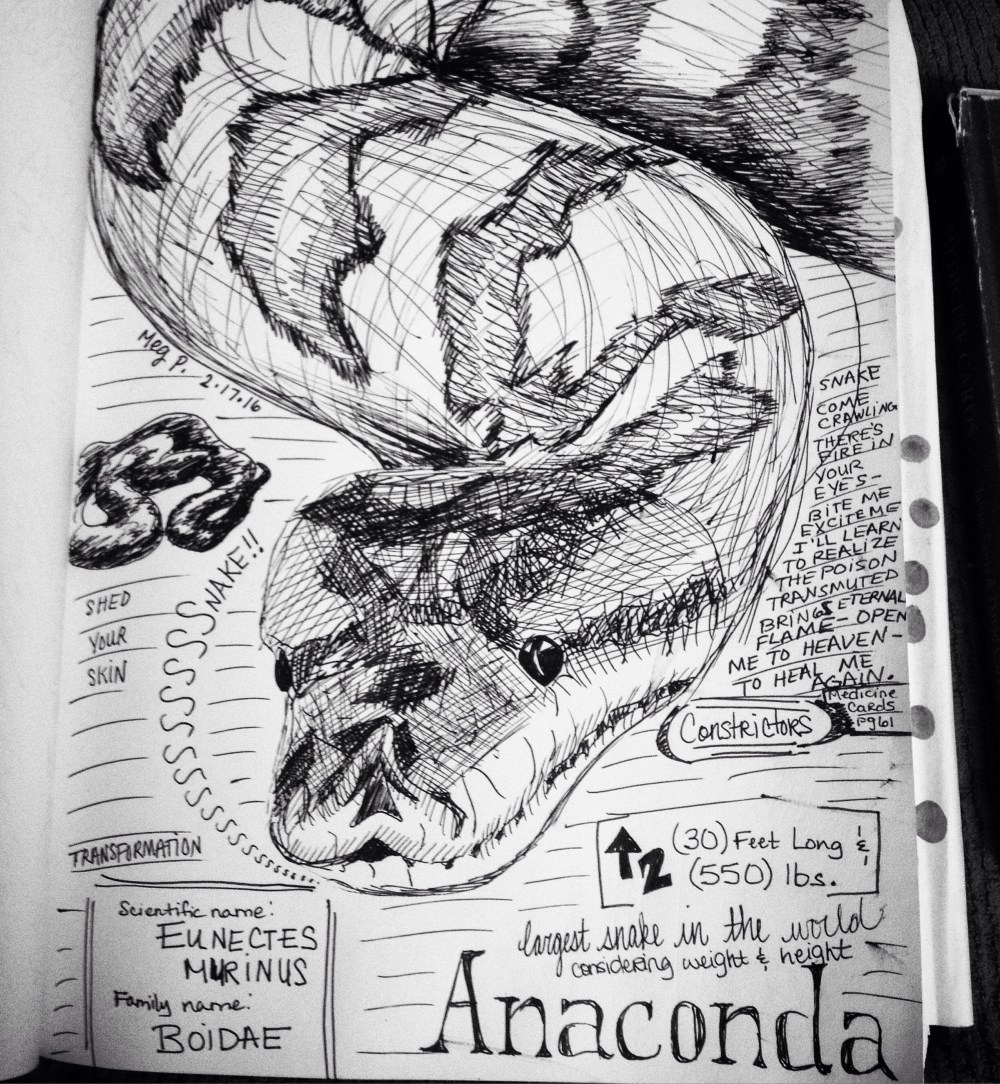 Meg P. 2.17.16
SNAKE
COME
CRAWLING
THERE'S
FIRE IN
YOUR
EYES-
BITE ME
EXCITE ME
I'LL LEARN
TO REALIZE
THE POISON
TRANSMUTED
BRINGS ETERNAL
FLAME- OPEN
ME TO HEAVEN-
TO HEAL ME
AGAIN.
Medicine
Cards
Pg 61
SNAKE!!
SHED
YOUR
SKIN
Constrictors
TRANSFORMATION
(30) Feet Long &
(550) lbs.
2
largest snake in the world
considering weight & height
Anaconda
Scientific name:
EUNECTES
MURINUS
Family name:
BOIDAE